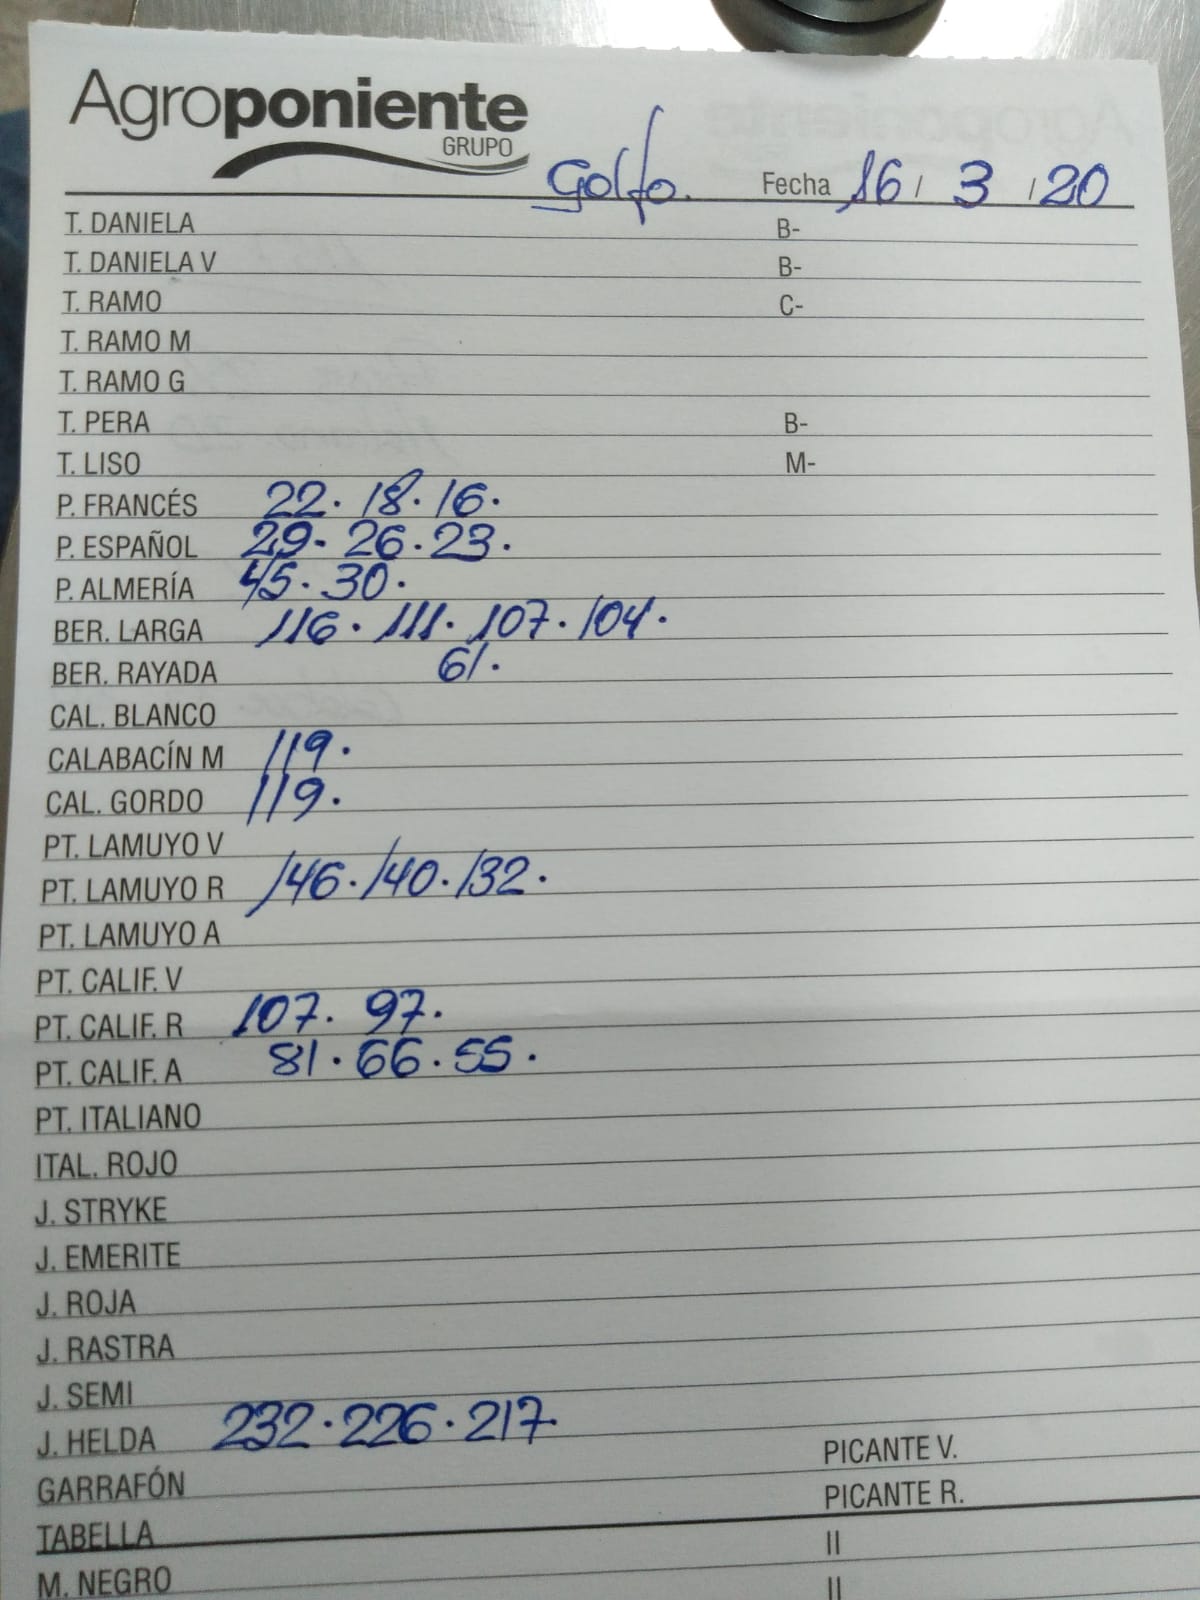 Agroponiente
GRUPO
Golfo. Fecha 16 / 3 / 20
T. DANIELA B-
T. DANIELA V B-
T. RAMO C-
T. RAMO M
T. RAMO G
T. PERA B-
T. LISO M-
P. FRANCÉS 22. 18. 16.
P. ESPAÑOL 29- 26. 23.
P. ALMERÍA 45. 30.
BER. LARGA 116. 111. 107. 104.
BER. RAYADA 61.
CAL. BLANCO
CALABACÍN M 119.
CAL. GORDO 119.
PT. LAMUYO V
PT. LAMUYO R 146. 140. 132.
PT. LAMUYO A
PT. CALIF. V
PT. CALIF. R 107. 97.
PT. CALIF. A 81. 66. 55.
PT. ITALIANO
ITAL. ROJO
J. STRYKE
J. EMERITE
J. ROJA
J. RASTRA
J. SEMI
J. HELDA 232. 226. 217.
GARRAFÓN PICANTE V.
TABELLA PICANTE R.
M. NEGRO II
II